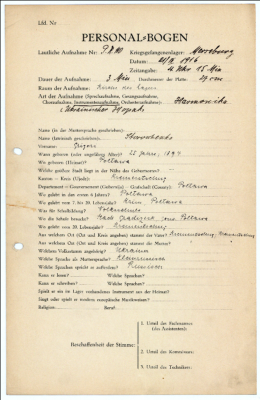 Lfd. Nr.
PERSONAL-BOGEN
Lautliche Aufnahme Nr: Kriegsgefangenenlager: Merseburg
Datum: 1916
Zeitangabe: 4 Uhr 15 Min
Dauer der Aufnahme: 3 Min Durchmesser der Platte: 27 cm
Raum der Aufnahme: des Lagers
Art der Aufnahme (Sprechaufnahme, Gesangsaufnahme,
Choraufnahme, Instrumentenaufnahme, Orchesteraufnahme): Harmonika
Ukrainischer Hopak
Name (in der Muttersprache geschrieben):
Name (lateinisch geschrieben):
Vorname: Grigori
Wann geboren (oder ungefähres Alter)? 25 Jahre, 1891
Wo geboren (Heimat)? Poltawa
Welche größere Stadt liegt in der Nähe des Geburtsortes?
Kanton – Kreis (Ujedz): Krementschug
Department – Gouvernement (Gubernija) – Grafschaft (County): Poltawa
Wo gelebt in den ersten 6 Jahren? Poltawa
Wo gelebt vom 7. bis 20. Lebensjahr? Poltawa
Was für Schulbildung?
Wo die Schule besucht? Poltawa
Wo gelebt vom 20. Lebensjahr? Krementschug
Aus welchem Ort (Ort und Kreis angeben) stammt der Vater? Krementschug
Aus welchem Ort (Ort und Kreis angeben) stammt die Mutter?
Welchem Volksstamm angehörig? Ukraine
Welche Sprache als Muttersprache?
Welche Sprachen spricht er außerdem? Russisch
Kann er lesen? Welche Sprachen?
Kann er schreiben? Welche Sprachen?
Spielt er ein im Lager vorhandenes Instrument aus der Heimat?
Singt oder spielt er moderne europäische Musikweisen?
Religion: Beruf:
Beschaffenheit der Stimme:
1. Urteil des Fachmannes
(des Assistenten):
2. Urteil des Kommissars:
3. Urteil des Technikers: